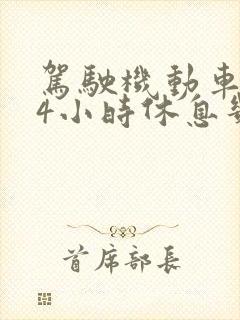 駕駛機動車
4小時休息幾
首席部長